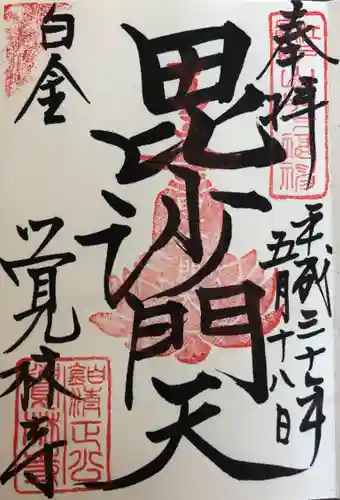 奉拝
平成三十年
五月十八日
毘沙門天
白金
覚林寺
清正公